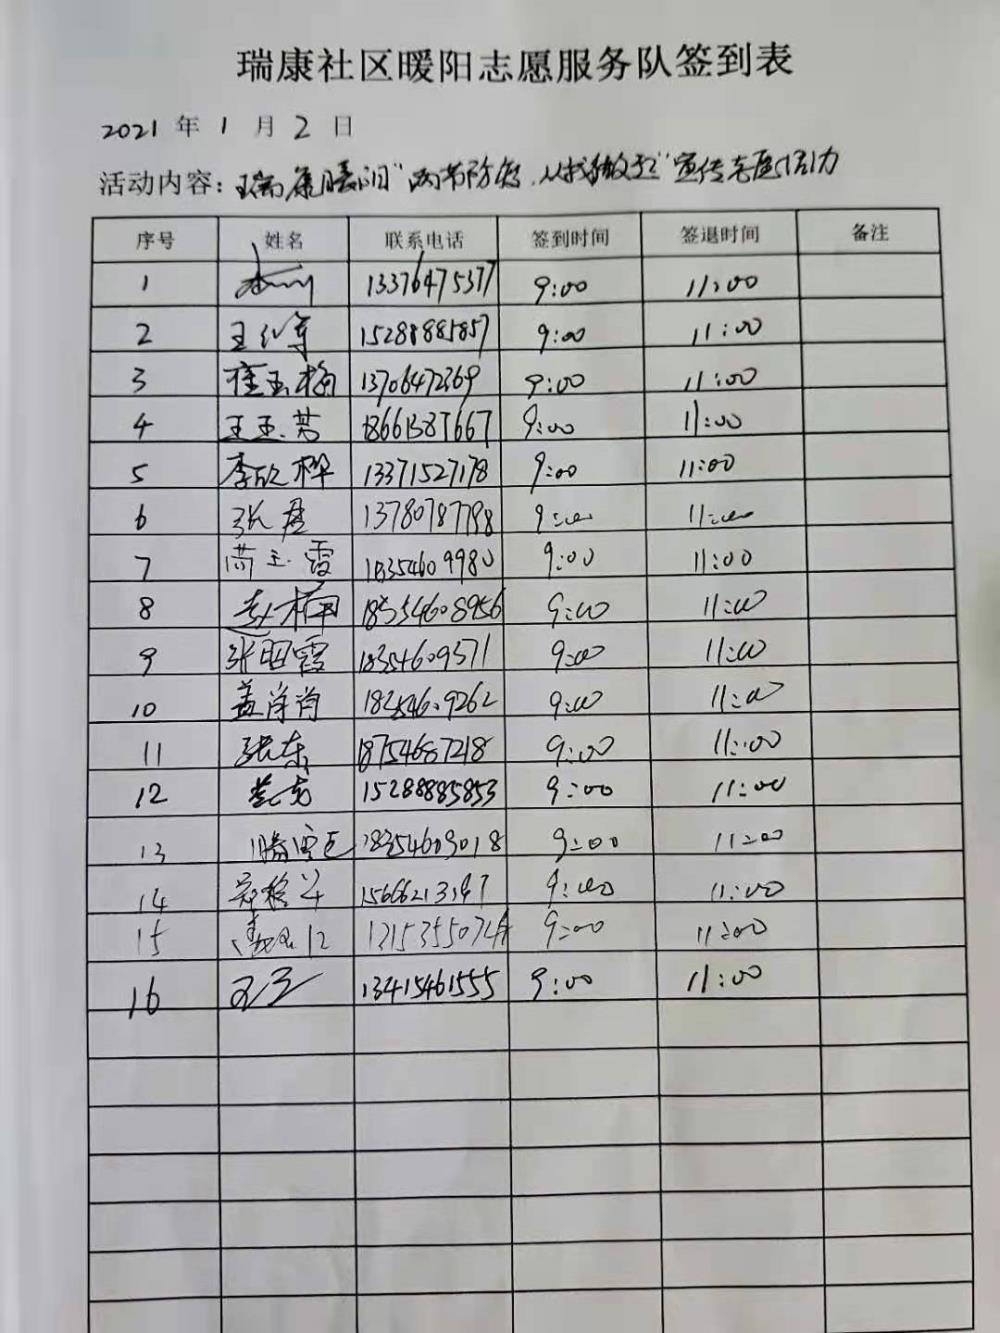 瑞康社区暖阳志愿服务队签到表
2021 年 1 月 2 日
活动内容：瑞康暖阳"两节防疫，从我做起"宣传志愿活动
序号 姓名 联系电话 签到时间 签退时间 备注
1 13376475377 9:00 11:00
2 王 军 15288885857 9:00 11:00
3 崔玉梅 13706472369 9:00 11:00
4 王玉芳 18661387667 9:00 11:00
5 李欣桦 13371527178 9:00 11:00
6 张 13780787798 9:00 11:00
7 玉霞 18354609980 9:00 11:00
8 赵楠 18554608956 9:00 11:00
9 张明霞 18354609371 9:00 11:00
10 盖洋洋 18254609262 9:00 11:00
11 张东 18754687218 9:00 11:00
12 15288885853 9:00 11:00
13 18354603018 9:00 11:00
14 15666213197 9:00 11:00
15 9:00 11:00
16 13415461555 9:00 11:00